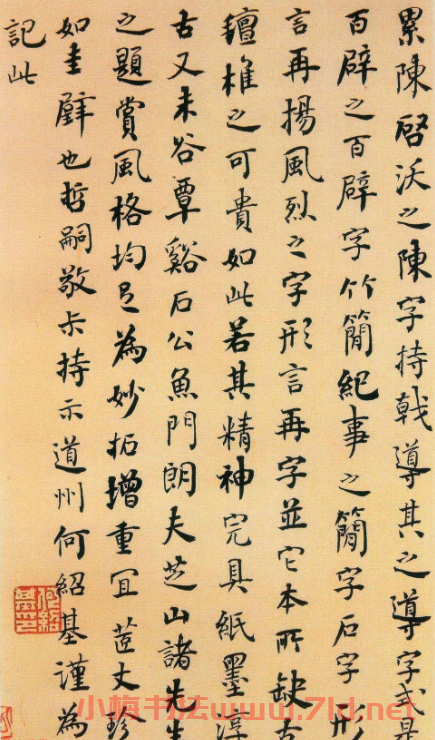 累陳啓沃之陳字持戟導其之導字或是
百辟之百辟字竹簡紀事之簡字石字形
言再揚風烈之字形言再字並它本所缺古
椎之可貴如此若其精神完具紙墨淳
古又未谷覃谿石公魚門朗夫芝山諸先生
之題賞風格均足為妙拓增重宜丈珍
如圭璧也哲嗣敬持示道州何紹基謹為
記此
何紹基印
小梅书法www.7ld.net